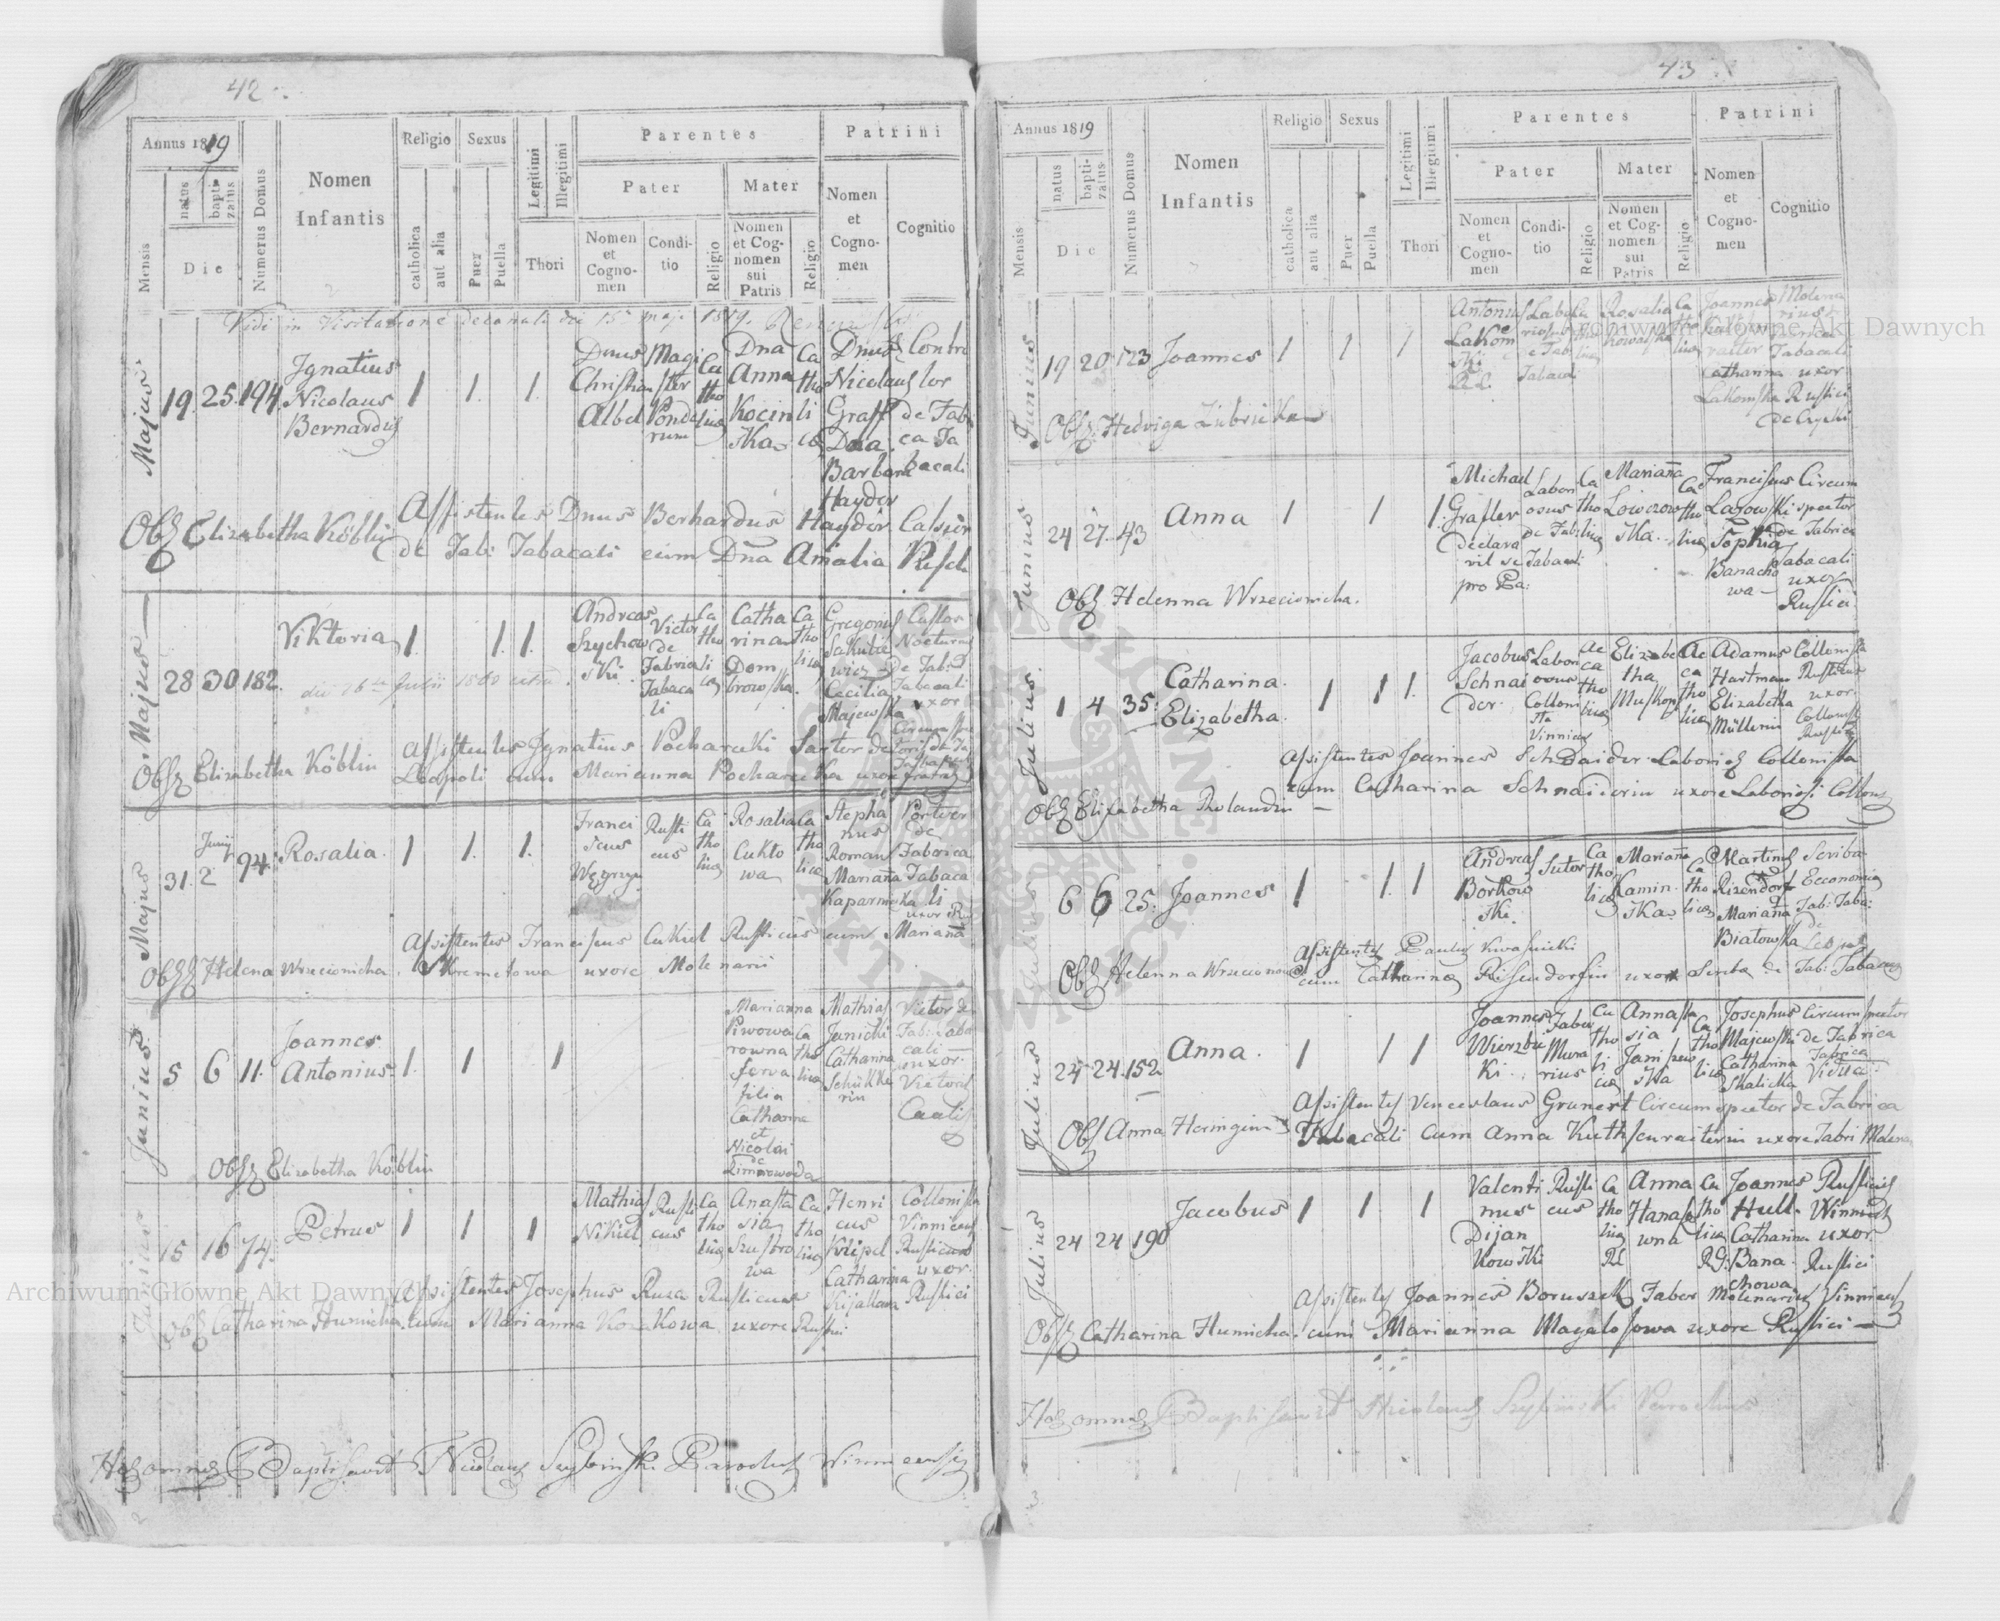 42
Annus 1819
Mensis
natus
bapti-
zatus
Die
Numerus Domus
Nomen
Infantis
Religio
catholica
aut alia
Sexus
Puer
Puella
Legitimi
Illegitimi
Thori
Parentes
Pater
Nomen
et
Cogno-
men
Condi-
tio
Religio
Mater
Nomen
et Cog-
nomen
sui
Patris
Religio
Patrini
Nomen
et
Cogno-
men
Cognitio
Vidi in Visitatione decanali die 15 maji 1819.
Majus
19. 25. 194.
Ignatius
Nicolaus
Bernardus
1 1. 1.
Dnus
Christian
Albel
Magi
ster
Ponde
rum
Ca
tho
lica
Dna
Anna
Kocin
ska
Ca
tho
li
ca
Dnus
Nicolaus
Graff
Dna
Barbara
Hayder
Contro
lor
de Fab
ca Ta
bacali
Obs Elizabetha Köblin
Assistentes Dnus Berhardus Haydir Cassier
de Fab: Tabacali cum Dna Amalia
Majus
28 30 182.
Viktoria
1. 1. 1.
Andreas
Szychow
ski
Victor
de
Fabrica
Tabaca
li
Ca
tho
li
ca
Catha
rina
Dom
browska
Ca
tho
lica
Gregorius
Sakubo
wicz
Cecilia
Majewska
Custos
Nocturnus
de Fab:
Tabacali
uxor
Obs Elizabetha Köblin
Assistentes Ignatius Pocharecki Sartor de
Leopoli cum Marianna Pocharecka uxore
Majus
31.
Junij
2
94.
Rosalia.
1 1. 1.
Franci
scus
Węgrzyn
Rusti
cus
Ca
tho
lica
Rosalia
Cukło
wa
Ca
tho
lica
Stepha
nus
Roman
Mariana
Kaparnicka
Portier
de
Fabrica
Tabaca
li
uxor
Obs Helena Wrzecionicha.
Assistentes Franciscus Cukiel Rusticus cum Mariana
Skremetowa uxore Molenarii
Junius
5 6 11.
Joannes
Antonius
1. 1 1
Marianna
Piwowa
rowna
serva
filia
Catharinae
et
Nicolai
de
Zimnowoda
Ca
tho
lica
Mathias
Janicki
Catharina
Schükke
rin
Victor de
Fab: Taba
cali
uxor
Victoris
Obs Elizabetha Köblin
Junius
15 16 74.
Petrus
1 1 1
Mathias
Nikiel
Rusti
cus
Ca
tho
lica
Anasta
sia
Szustro
wa
Ca
tho
lica
Henri
cus
Klipel
Catharina
Kijakowa
Collonista
Vinnicens
Rusticus
uxor
Rustici
Assistentes Josephus Ruza Rusticus
Obs Catharina Humicha. cum Marianna Kozakowa uxore Rustici
Hos omnes Baptisavit Nicolaus Szylinski Parochus Winnicensis
43
Annus 1819
Mensis
natus
bapti-
zatus
Die
Numerus Domus
Nomen
Infantis
Religio
catholica
aut alia
Sexus
Puer
Puella
Legitimi
Illegitimi
Thori
Parentes
Pater
Nomen
et
Cogno-
men
Condi-
tio
Religio
Mater
Nomen
et Cog-
nomen
sui
Patris
Religio
Patrini
Nomen
et
Cogno-
men
Cognitio
Junius
19 20 123
Joannes
1 1 1
Antonius
Lakom
ski
Labo
Tabacal
Rosalia
kowalska
Joannes
Catharina
Lakomska
Molena
rius
Fabrica
Tabacali
uxor
Rustici
Obs: Hedviga Zubricka
Junius
24 27 43
Anna
1 1 1.
Michael
Grafler
declara
vit se
pro Pa:
Labori
osus
de Fab:
Tabacali
Ca
tho
lica
Mariana
Lowczow
ska
Ca
tho
lica
Franciscus
Lasowski
Sophia
Banacho
wa
Circum
spector
de Fabrica
Tabacali
uxor
Rustici
Obs Helenna Wrzecionicha.
Julius
1 4 35.
Catharina.
Elizabetha.
1 1 1.
Jacobus
Schnai
der
Labori
osus
Collonis
ta
Vinnicen
Ca
tho
lica
Elizabe
tha
Muskop
Ca
tho
lica
Adamus
Hartman
Elizabetha
Müllerin
Collonista
Rusticus
uxor
Collonistae
Rustici
Assistentes Joannes Schnaider Laboriosus Collonista
cum Catharina Schnaiderin uxore Laboriosi Collonis
Obs Elisabetha Rolandin
Julius
6 6 25.
Joannes
1 1. 1
Andreas
Borkow
ski.
Sutor
Ca
tho
lica
Mariana
Kamin
ska
Ca
tho
lica
Martinus
Rizendorf
Mariana
Białowska
Scriba
Economia
Fab: Taba:
de
Leopol
Assistentes Paulus Kwasnicki
Obs Helenna Wrzecionowa cum Catharina Risendorfin uxore Scriba de Fab: Tabacal
Julius
24 24. 152.
Anna.
1 1 1
Joannes
Wierzbic
ki
Faber
Mura
rius
Ca
tho
li
ca
Annasta
sia
Janiszew
ska
Ca
tho
lica
Josephus
Majewski
Catharina
Skalicka
Circumspector
de Fabrica
Fabrica
Vidua
Assistentes Venceslaus Grunert Circumspector de Fabrica
Obs Anna Heringin Tabacali cum Anna Kuthscuraiterin uxore Fabri Molena
Julius
24 24 190
Jacobus
1 1 1
Valenti
nus
Dijan
kowski
Rusti
cus
Ca
tho
lica
Anna
Hanas
wna
Ca
tho
lica
Joannes
Hull.
Catharina
Bana
chowa
Rusticus
Winnicens
uxor
Rustici
Assistentes Joannes Boruszek Faber Molinarius Vinnicens
Obs Catharina Humicha. cum Marianna Magalosowa uxore Rustici
Hos omnes Baptisavit Nicolaus Szylinski Parochus
Archiwum Główne Akt Dawnych
Archiwum Główne Akt Dawnych